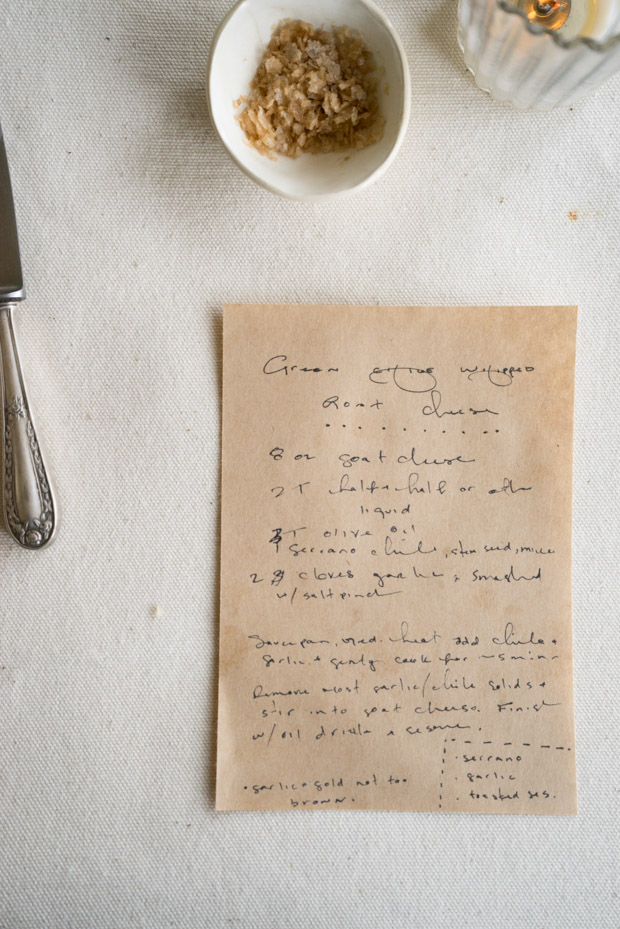 Green whipped
goat cheese
8 oz goat cheese
2 T half + half or other
liquid
3 T olive oil
1 serrano chile, stem seed, mince
2 cloves garlic, smashed
w/ salt pinch
Saucepan, med. heat add chile +
garlic + gently cook for ~5 min
Remove most garlic/chile solids +
stir into goat cheese. Finish
w/ oil drizzle + sesame.
• serrano
• garlic
• toasted ses.
• garlic = gold not too
brown.